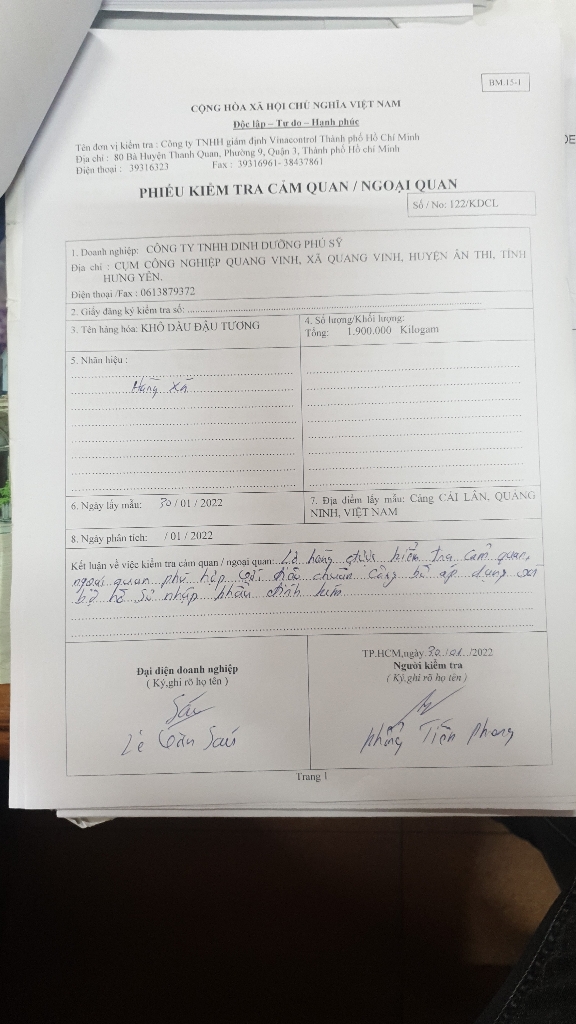 BM.15-1
CỘNG HÒA XÃ HỘI CHỦ NGHĨA VIỆT NAM
Độc lập – Tự do – Hạnh phúc
Tên đơn vị kiểm tra : Công ty TNHH giám định Vinacontrol Thành phố Hồ Chí Minh
Địa chỉ : 80 Bà Huyện Thanh Quan, Phường 9, Quận 3, Thành phố Hồ chí Minh
Điện thoại : 39316323 Fax : 39316961- 38437861
PHIẾU KIỂM TRA CẢM QUAN / NGOẠI QUAN
Số / No: 122/KDCL
1. Doanh nghiệp: CÔNG TY TNHH DINH DƯỠNG PHÚ SỸ
Địa chỉ : CỤM CÔNG NGHIỆP QUANG VINH, XÃ QUANG VINH, HUYỆN ÂN THI, TỈNH
HƯNG YÊN.
Điện thoại /Fax : 0613879372
2. Giấy đăng ký kiểm tra số:
3. Tên hàng hóa: KHÔ DẦU ĐẬU TƯƠNG
4. Số lượng/Khối lượng:
Tổng: 1.900.000 Kilogam
5. Nhãn hiệu :
Hàng xá
6. Ngày lấy mẫu: 30 / 01 / 2022
7. Địa điểm lấy mẫu: Cảng CÁI LÂN, QUẢNG
NINH, VIỆT NAM
8. Ngày phân tích: / 01 / 2022
Kết luận về việc kiểm tra cảm quan / ngoại quan: Lô hàng được kiểm tra cảm quan,
ngoại quan phù hợp với tiêu chuẩn công bố áp dụng và
bộ hồ sơ nhập khẩu đính kèm
Đại diện doanh nghiệp
( Ký,ghi rõ họ tên )
Lê Văn Sáu
TP.HCM,ngày 30 / 01 /2022
Người kiểm tra
( Ký,ghi rõ họ tên )
Phùng Tiến Phong
Trang 1